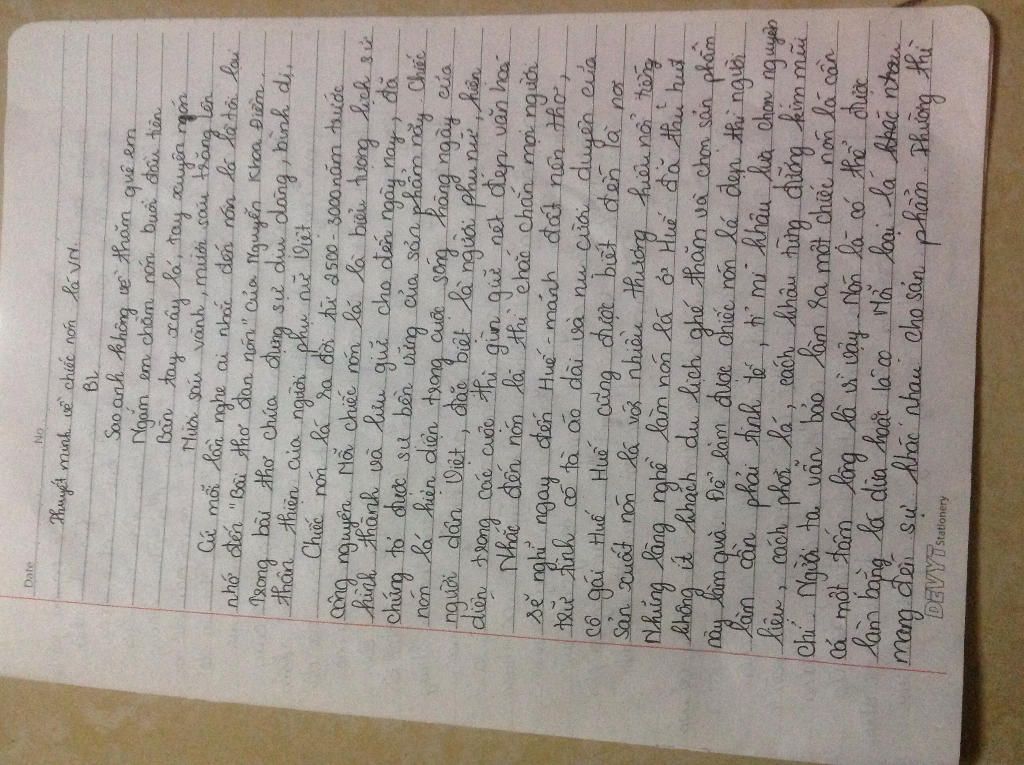 Date
No
Thuyết minh về chiếc nón lá VN.
BL
Sao anh không về thăm quê em
Ngắm em chằm nón buổi đầu tiên
Bàn tay xây lá, tay xuyên nón
Mười sáu vành, mười sau trăng lên
Cứ mỗi lần nghe ai nhắc đến nón lá là tôi lại
nhớ đến "Bài thơ đan nón" của Nguyễn Khoa Điềm.
Trong bài thơ chứa đựng sự dịu dàng, bình dị,
thân thiên của người phụ nữ Việt
Chiếc nón lá ra đời từ 2500-3000 năm trước
công nguyên. Mỗi chiếc nón lá là biểu trưng lịch sử
hình thành và lưu giữ cho đến ngày nay, đã
chứng tỏ được sự bền vững của sản phẩm này Chiếc
nón lá hiện diện trong cuộc sống hàng ngày của
người dân Việt, đặc biệt là người phụ nữ, hiện
diện trong các cuộc thi gìn giữ nét đẹp văn hoá
Nhắc đến nón lá thì chắc chắn mọi người
sẽ nghĩ ngay đến Huế - mảnh đất nên thơ,
trữ tình có tà áo dài và nụ cười duyên của
cô gái Huế Huế cũng được biết đến là nơi
sản xuất nón lá với nhiều thương hiệu nổi tiếng
Những làng nghề làm nón lá ở Huế đã thu hút
không ít khách du lịch ghé thăm và chọn sản phẩm
này làm quà. Để làm được chiếc nón lá đẹp thì người
làm cần phải tinh tế, tỉ mỉ khâu lựa chọn nguyên
liệu, cách phơi lá, cách khâu từng đường kim mũi
chỉ Người ta vẫn bảo làm ra một chiếc nón lá cần
cả một tấm lòng là vì vậy. Nón lá có thể được
làm bằng lá dừa hoặc lá cọ Mỗi loại lá khác nhau
mang đến sự khác nhau cho sản phẩm. Thường thì
DEVYT Stationery